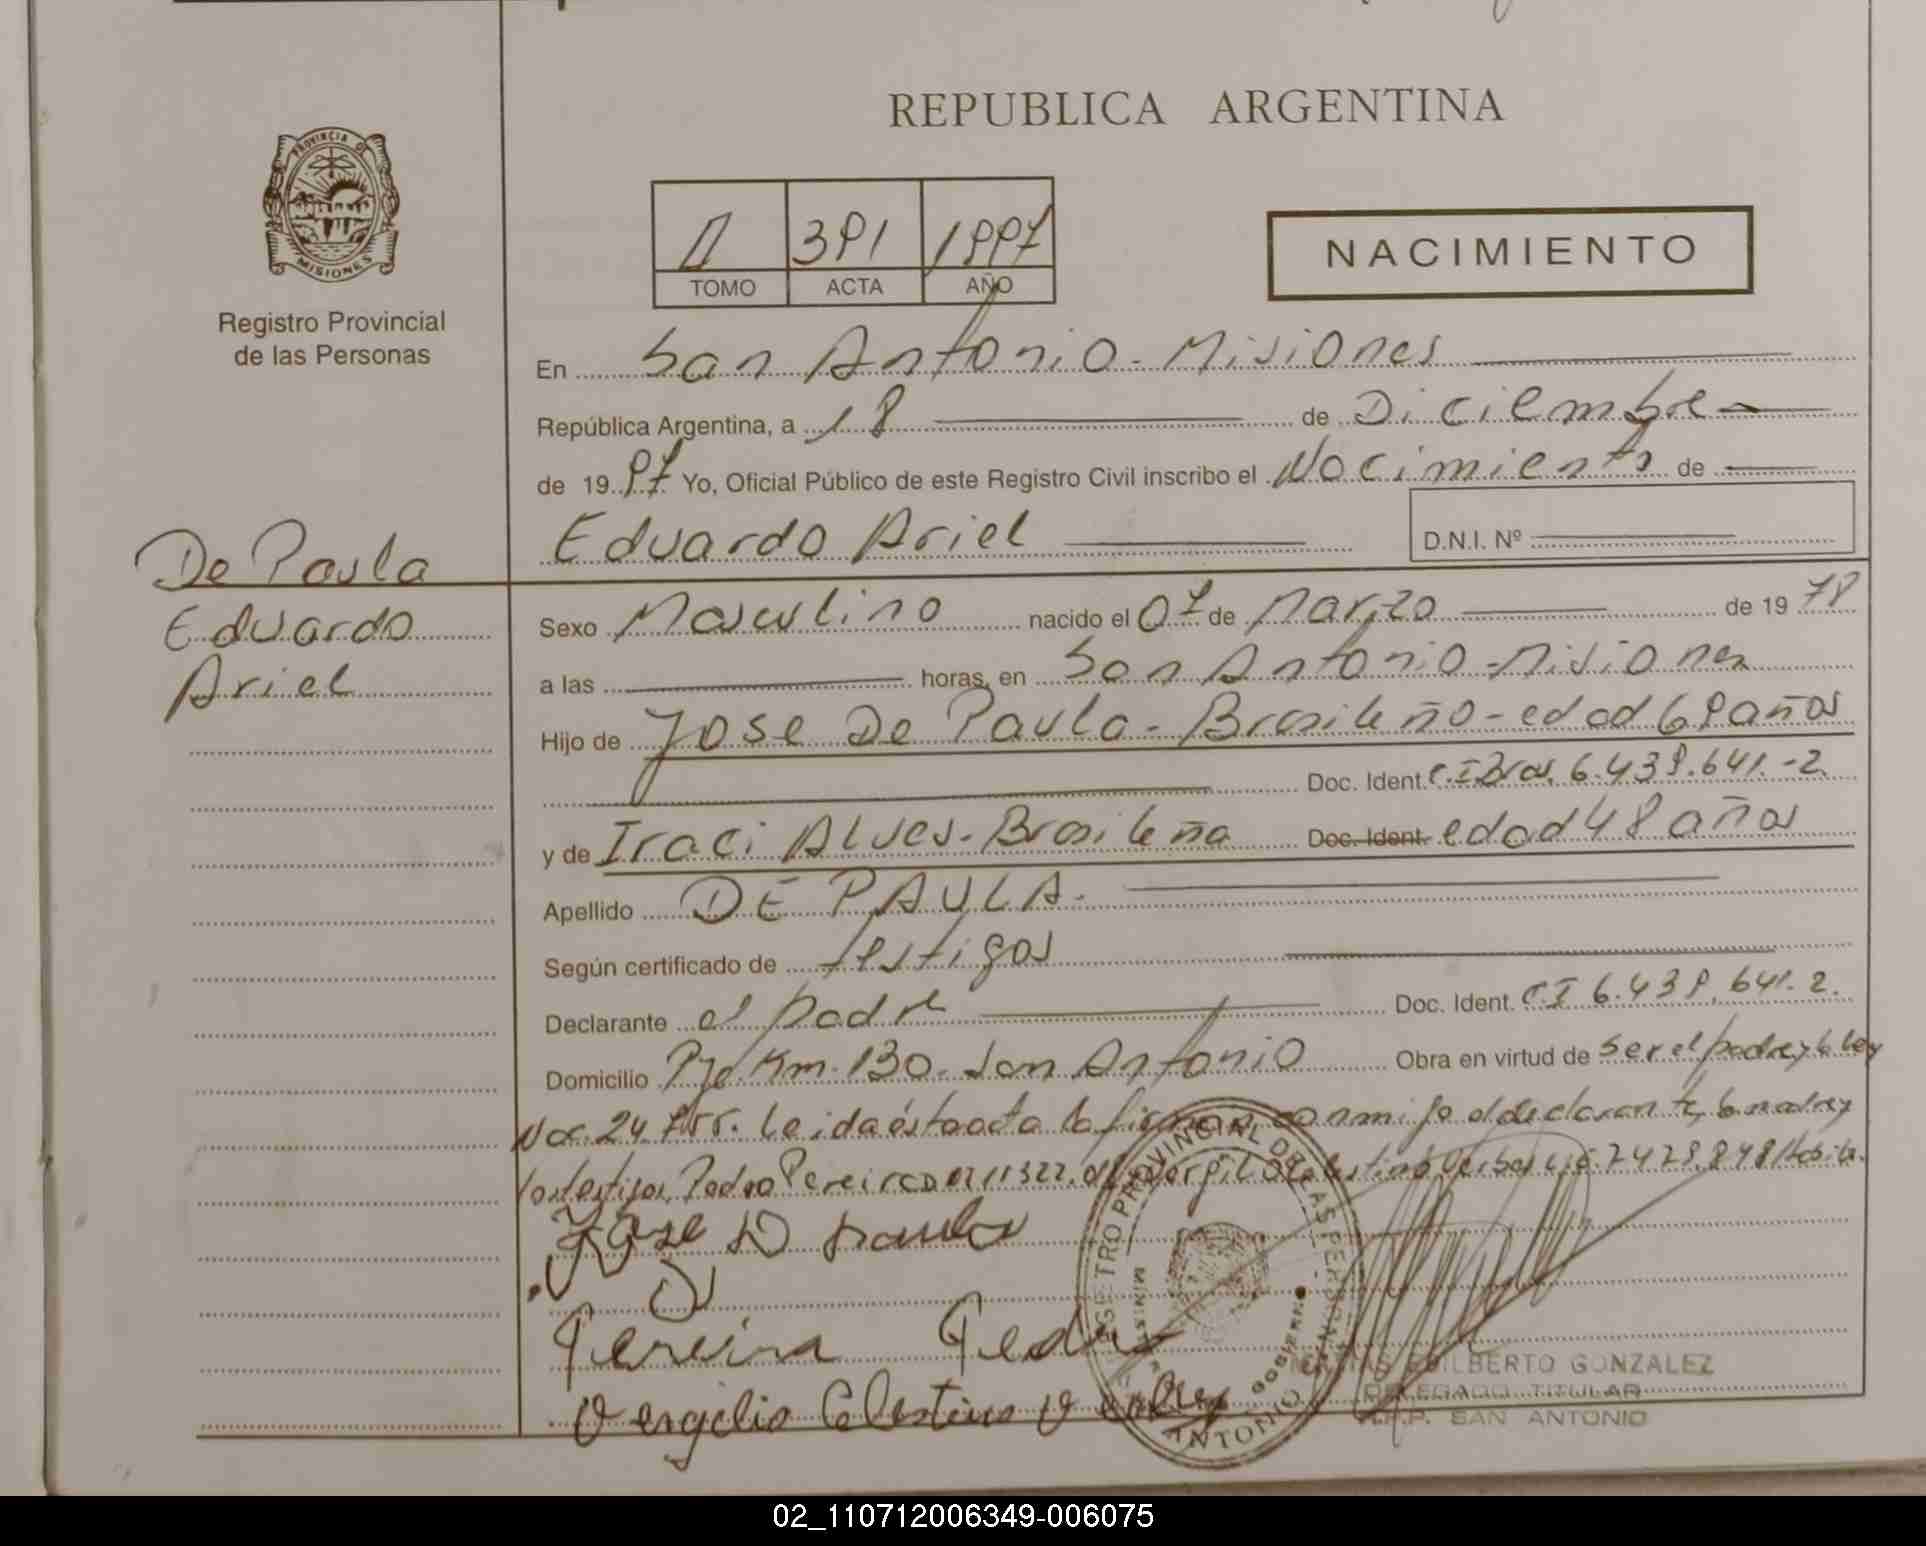 REPUBLICA ARGENTINA
PROVINCIA DE
MISIONES
Registro Provincial
de las Personas
II 391 1997
TOMO ACTA AÑO
NACIMIENTO
En San Antonio - Misiones
República Argentina, a 18 de Diciembre
de 1997 Yo, Oficial Público de este Registro Civil inscribo el Nacimiento de
Eduardo Ariel D.N.I. Nº
De Paula
Eduardo
Ariel
Sexo Masculino nacido el 07 de Marzo de 19 78
a las horas, en San Antonio - Misiones
Hijo de Jose De Paula - Brasileño - edad 69 años
Doc. Ident. C.I Bras. 6.439.641.-2
y de Iraci Alves - Brasileña Doc. Ident. edad 48 años
Apellido DE PAULA.
Según certificado de testigos
Declarante el padre Doc. Ident. C.I 6.439.641.2.
Domicilio Pje. Km. 130. San Antonio Obra en virtud de ser el padre y la Ley
Nac. 24 Leida ésta acta la firman conmigo el declarante, la madre y
los testigos, Pedro Pereira Celestino 2429.848
Jose D Paula
Pereira Pedro
Vergilio Celestino
REGISTRO PROVINCIAL DE LAS PERSONAS
GOBIERNO
ANTONIO
EDILBERTO GONZALEZ
DELEGADO TITULAR
R.P.P. SAN ANTONIO
02_110712006349-006075